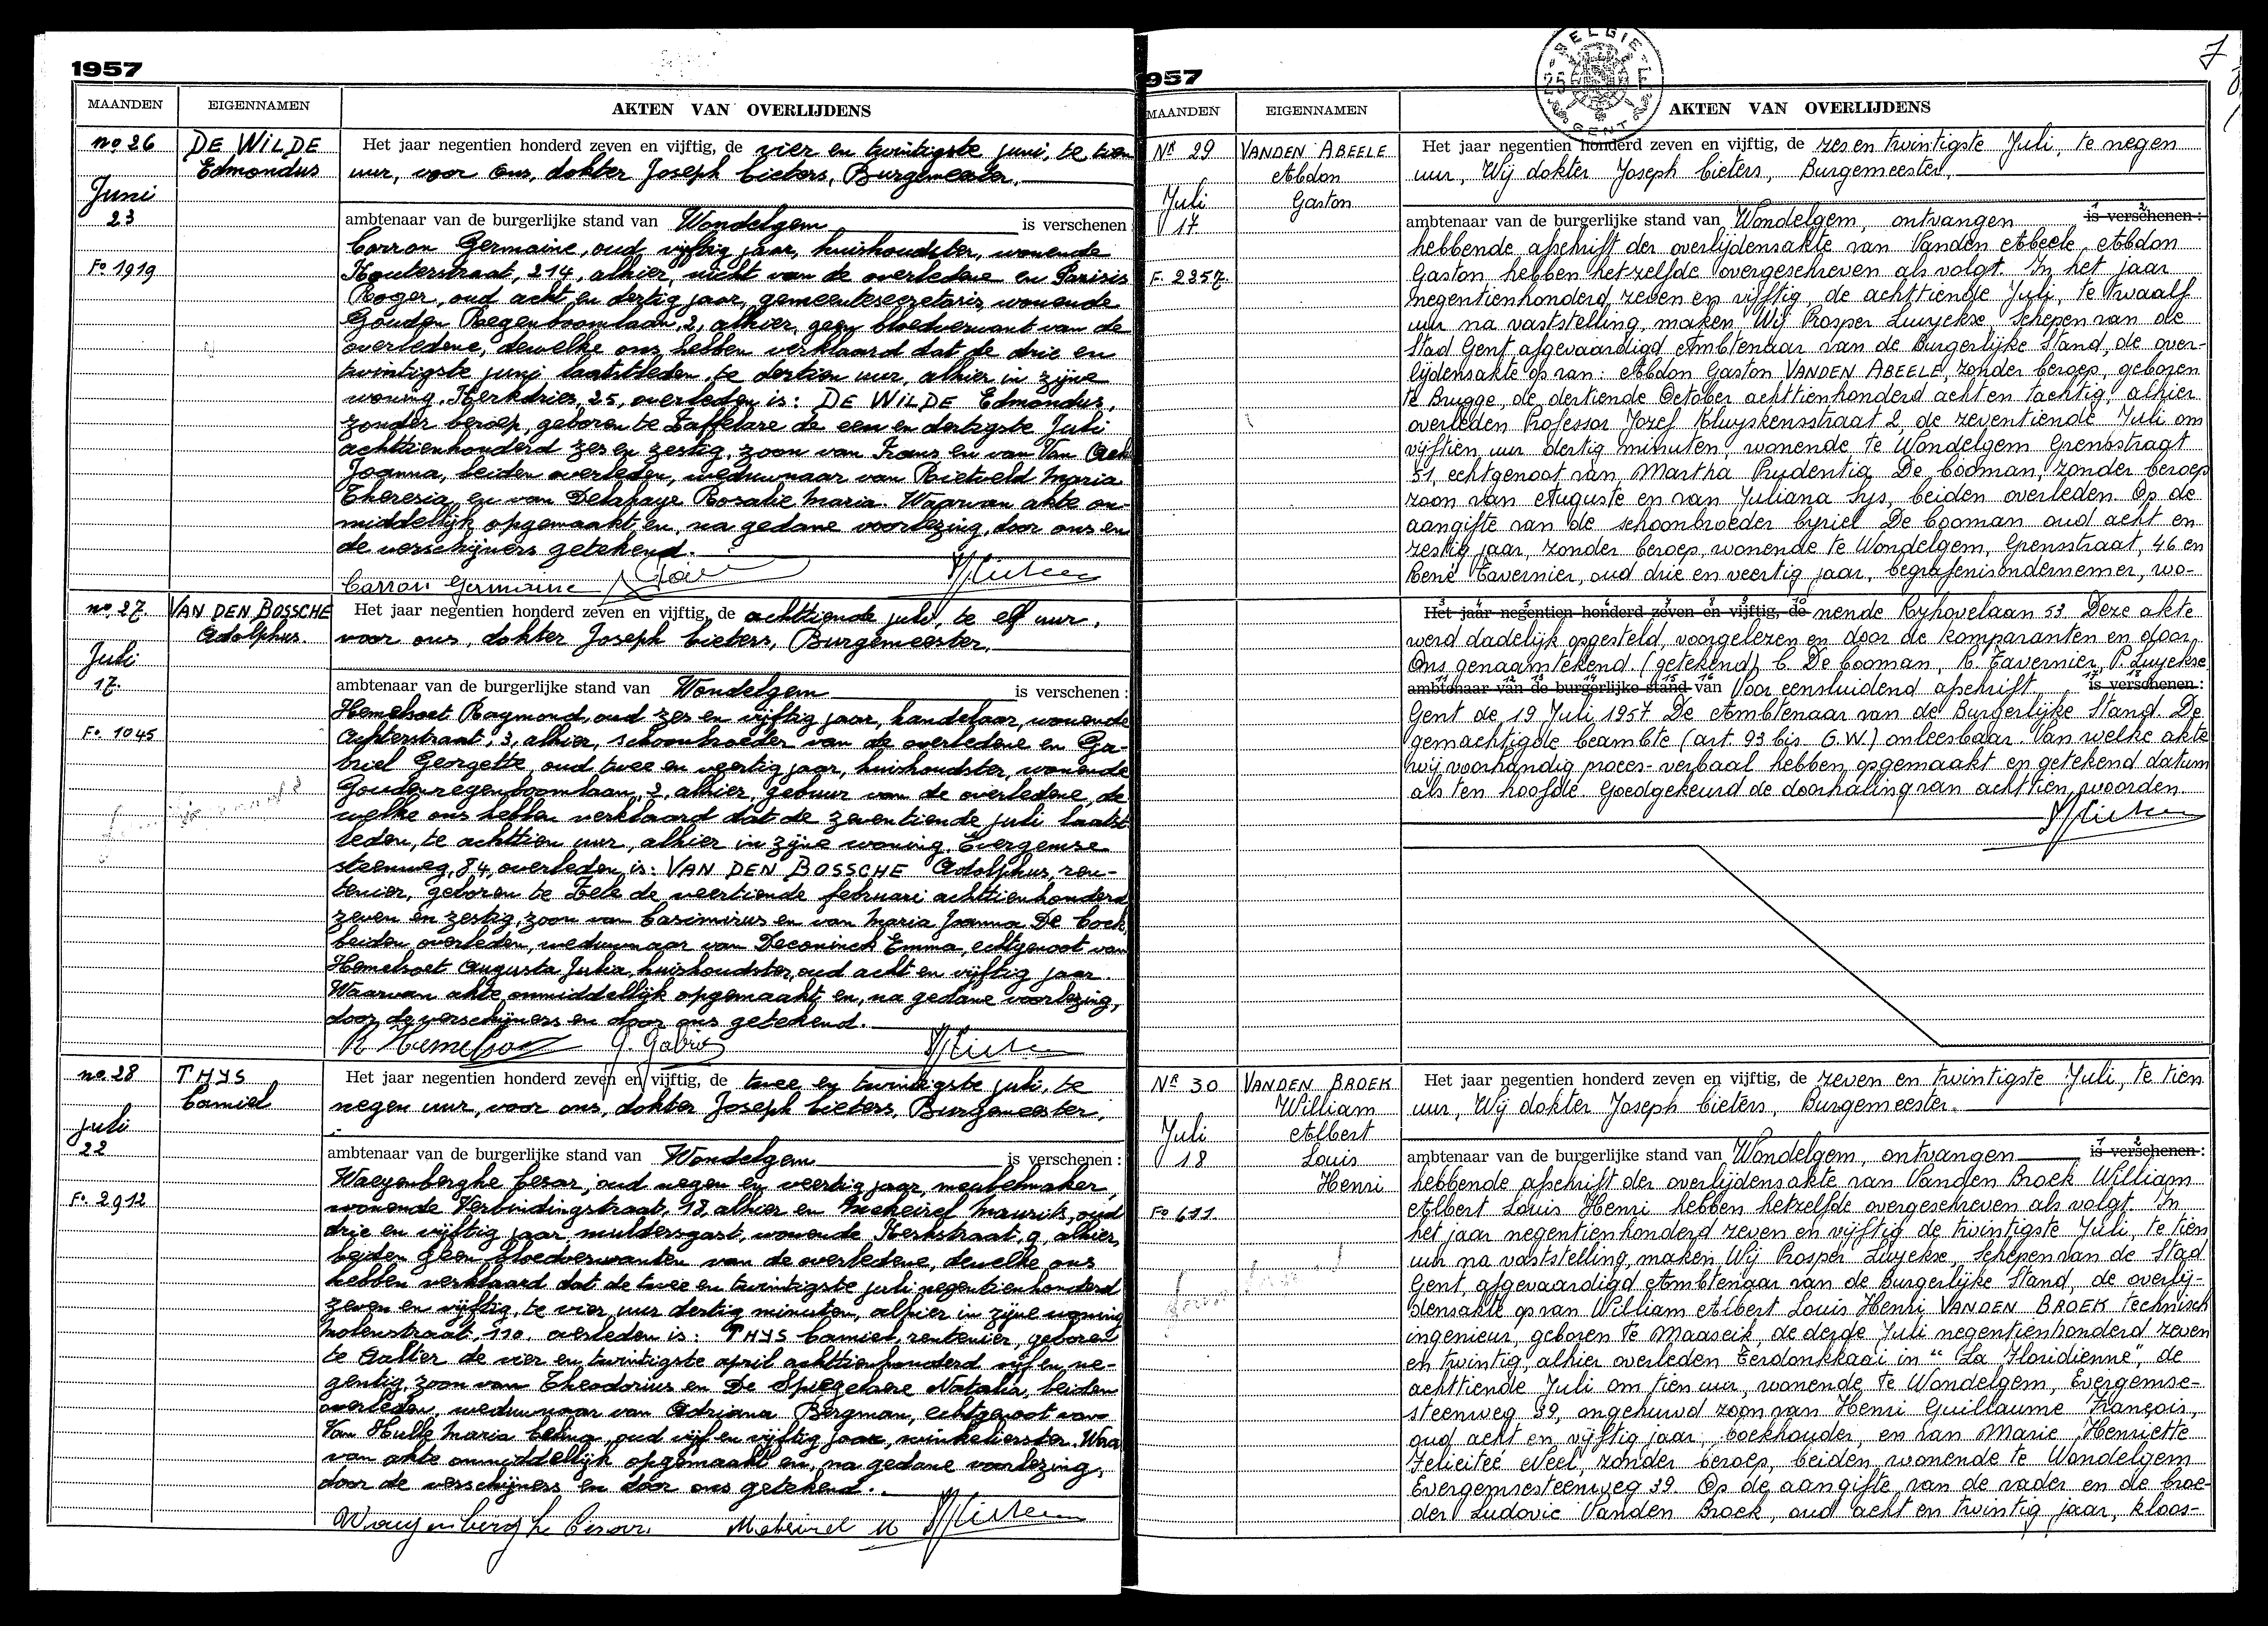 1957
MAANDEN EIGENNAMEN AKTEN VAN OVERLIJDENS
no 26
Juni
23
Fo 1919
DE WILDE
Edmondus
Het jaar negentien honderd zeven en vijftig, de vier en twintigste juni, te tien
uur, voor ons, dokter Joseph Cieters, Burgemeester,
ambtenaar van de burgerlijke stand van Wondelgem is verschenen
Carron Germaine, oud vijftig jaar, huishoudster, wonende
Kouterstraat, 214, alhier, nicht van de overledene en Parisis
Roger, oud acht en dertig jaar, gemeentesecretaris, wonende
Gouden Regenboomlaan, 2, alhier, geen bloedverwant van de
overledene, dewelke ons hebben verklaard dat de drie en
twintigste juni laatstleden, te dertien uur, alhier in zijne
woning, Kerkdries, 25, overleden is: DE WILDE Edmondus,
zonder beroep, geboren te Zaffelare de een en dertigste Juli
achttienhonderd zes en zestig, zoon van Frans en van Van Acker
Joanna, beiden overleden, weduwnaar van Rietveld Maria
Theresia, en van Delahaye Rosalie Maria. Waarvan akte on-
middellijk opgemaakt en, na gedane voorlezing, door ons en
de verschijners getekend.
Carron Germaine
no. 27.
Juli
17.
Fo. 1045
VAN DEN BOSSCHE
Adolphus.
Het jaar negentien honderd zeven en vijftig, de achttiende juli, te elf uur,
voor ons, dokter Joseph Cieters, Burgemeester,
ambtenaar van de burgerlijke stand van Wondelgem is verschenen :
Hemelsoet Raymond, oud zes en vijftig jaar, handelaar, wonende
Achterstraat, 3, alhier, schoonbroeder van de overledene en Ga-
briel Georgette, oud twee en veertig jaar, huishoudster, wonende
Goudenregenboomlaan, 2, alhier, gebuur van de overledene, de-
welke ons hebben verklaard dat de zeventiende juli laatst-
leden, te achttien uur, alhier in zijne woning, Evergemse
steenweg, 84, overleden is: VAN DEN BOSSCHE Adolphus, ren-
tenier, geboren te Zele de veertiende februari achttienhonderd
zeven en zestig, zoon van Casimirus en van Maria Joanna De Cock,
beiden overleden, weduwnaar van Deconinck Emma, echtgenoot van
Hemelsoet Augusta Julia, huishoudster, oud acht en vijftig jaar.
Waarvan akte onmiddellijk opgemaakt en, na gedane voorlezing,
door de verschijners en door ons getekend.
R Hemelsoet G. Gabriel
no. 28
juli
22
Fo. 2912
THYS
Camiel
Het jaar negentien honderd zeven en vijftig, de twee en twintigste juli, te
negen uur, voor ons, dokter Joseph Cieters, Burgemeester,
ambtenaar van de burgerlijke stand van Wondelgem is verschenen :
Waeyenberghe Cesar, oud negen en veertig jaar, meubelmaker,
wonende Verbindingstraat, 13, alhier en Mekeirel Maurits, oud
drie en vijftig jaar, muldersgast, wonende Kerkstraat, 9, alhier,
beiden geen bloedverwanten van de overledene, dewelke ons
hebben verklaard dat de twee en twintigste juli negentienhonderd
zeven en vijftig, te vier uur dertig minuten, alhier in zijne woning
Molenstraat, 110, overleden is: THYS Camiel, rentenier, geboren
te Aalter de vier en twintigste april achttienhonderd vijf en ne-
gentig, zoon van Theodorius en De Spiegelaere Natalia, beiden
overleden, weduwnaar van Adriana Bergman, echtgenoot van
Van Hulle Maria Celina, oud vijf en vijftig jaar, winkelierster. Waar
van akte onmiddellijk opgemaakt en, na gedane voorlezing,
door de verschijners en door ons getekend.
Waeyenberghe Cesar. Mekeirel M
957
BELGIE
25 F
GENT
7
MAANDEN EIGENNAMEN AKTEN VAN OVERLIJDENS
NR 29
Juli
17
F. 2357.
VANDEN ABEELE
Abdon
Gaston
Het jaar negentien honderd zeven en vijftig, de zes en twintigste Juli, te negen
uur, Wij dokter Joseph Cieters, Burgemeester,
ambtenaar van de burgerlijke stand van Wondelgem, ontvangen is verschenen :
hebbende afschrift der overlijdensakte van Vanden Abeele Abdon
Gaston hebben hetzelfde overgeschreven als volgt. In het jaar
negentienhonderd zeven en vijftig, de achttiende Juli, te twaalf
uur na vaststelling, maken Wij Prosper Luyckse, Schepen van de
Stad Gent afgevaardigd Ambtenaar van de Burgerlijke Stand, de over-
lijdensakte op van: Abdon Gaston VANDEN ABEELE, zonder beroep, geboren
te Brugge, de dertiende October achttienhonderd acht en tachtig, alhier
overleden Professor Jozef Kluyskensstraat 2, de zeventiende Juli om
vijftien uur dertig minuten, wonende te Wondelgem Grensstraat
51, echtgenoot van Martha Prudentia De Cooman, zonder beroep
zoon van Auguste en van Juliana Lys, beiden overleden. Op de
aangifte van de schoonbroeder Cyriel De Cooman oud acht en
zestig jaar, zonder beroep, wonende te Wondelgem, Grensstraat, 46 en
René Tavernier, oud drie en veertig jaar, begrafenisondernemer, wo-
Het jaar negentien honderd zeven en vijftig, de nende Ryhovelaan 53. Deze akte
werd dadelijk opgesteld, voorgelezen en door de komparanten en door
Ons genaamtekend. (getekend) C. De Cooman, R. Tavernier, P. Luyckse
ambtenaar van de burgerlijke stand van Voor eensluidend afschrift is verschenen :
Gent de 19 Juli 1957 De Ambtenaar van de Burgerlijke Stand. De
gemachtigde beambte (art. 93 bis G.W.) onleesbaar. Van welke akte
wij voorhandig proces-verbaal hebben opgemaakt en getekend datum
als ten hoofde. Goedgekeurd de doorhaling van achttien woorden.
NR 30
Juli
18
Fo 611
VANDEN BROEK
William
Albert
Louis
Henri
Het jaar negentien honderd zeven en vijftig, de zeven en twintigste Juli, te tien
uur, Wij dokter Joseph Cieters, Burgemeester.
ambtenaar van de burgerlijke stand van Wondelgem, ontvangen is verschenen :
hebbende afschrift der overlijdensakte van Vanden Broek William
Albert Louis Henri hebben hetzelfde overgeschreven als volgt. In
het jaar negentienhonderd zeven en vijftig de twintigste Juli, te tien
uur na vaststelling, maken Wij Prosper Luyckse, Schepen van de Stad
Gent, afgevaardigd Ambtenaar van de Burgerlijke Stand, de overlij-
densakte op van William Albert Louis Henri VANDEN BROEK technisch
ingenieur, geboren te Maaseik, de derde Juli negentienhonderd zeven
en twintig, alhier overleden Terdonkkaai in "La Floridienne", de
achttiende Juli om tien uur, wonende te Wondelgem, Evergemse-
steenweg 39, ongehuwd zoon van Henri Guillaume François,
oud acht en vijftig jaar, boekhouder, en van Marie Henriette
Félicitée Neel, zonder beroep, beiden wonende te Wondelgem
Evergemsesteenweg 39. Op de aangifte van de vader en de broe-
der Ludovic Vanden Broek, oud acht en twintig jaar, kloos-